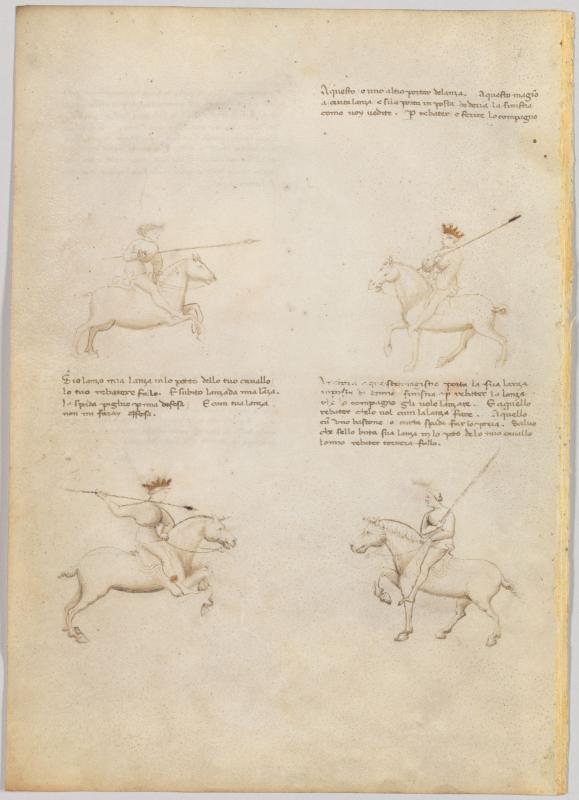 Aquesto e uno altro portar de lanza. Aquesto magro
a curta lanza e si la porta in posta de dona la sinistra
como voy vedite. P rebater e ferire lo compagno
E io lanzo mia lanza in lo petto dello tuo cavallo
lo tuo rebatere fallo. E subito lanzada mia laza.
la spada piglio p mia defesa. E cum tua lanza
non mi faray offesa.
Anchora questo magistro porta la sua lanza
in posta di dona sinistra p rebater la lanza
che lo compagno gli vole lanzare. E aquello
rebater chelo vol cum la lanza fare. Aquello
cu uno bastone o curta spada far lo poria. Salvo
che sello buta sua lanza in lo peto de lo mio cavallo
lo mio rebater tornera fallo.